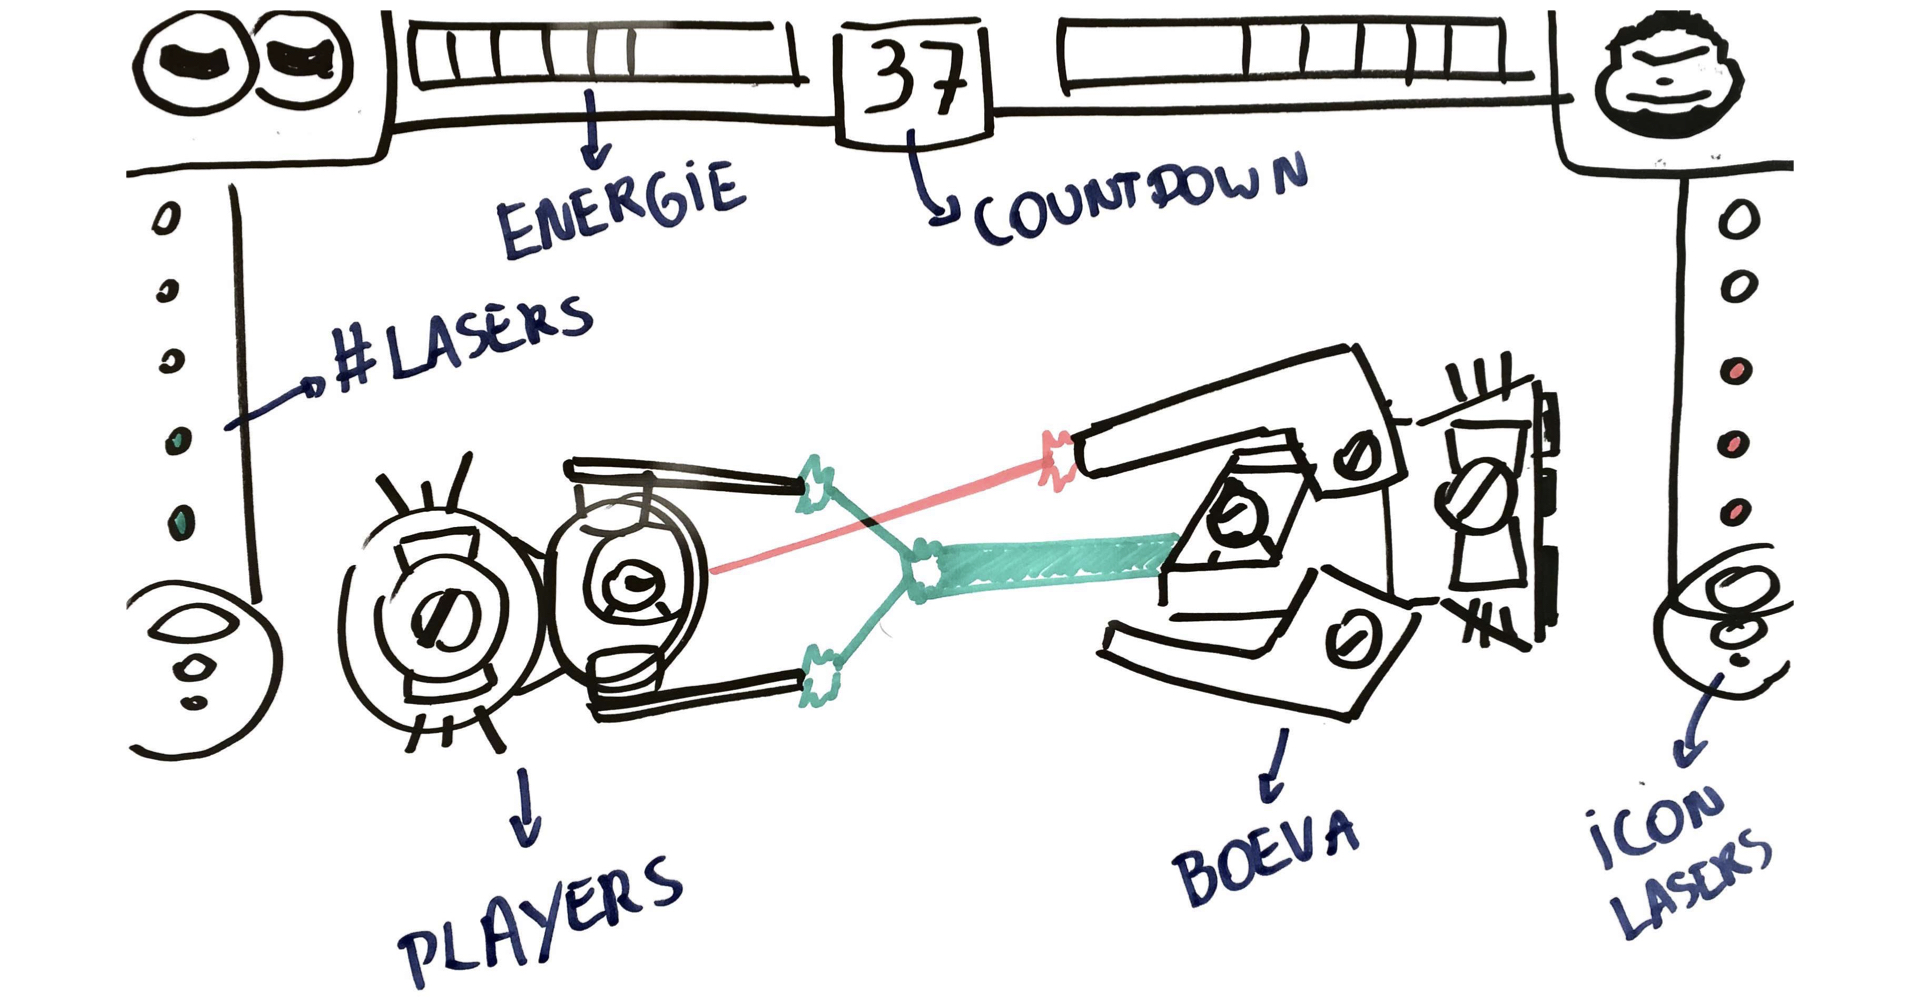 37
ENERGiE
COUNTDOWN
#LASERS
PLAYERS
BOEVA
iCON
LASERS